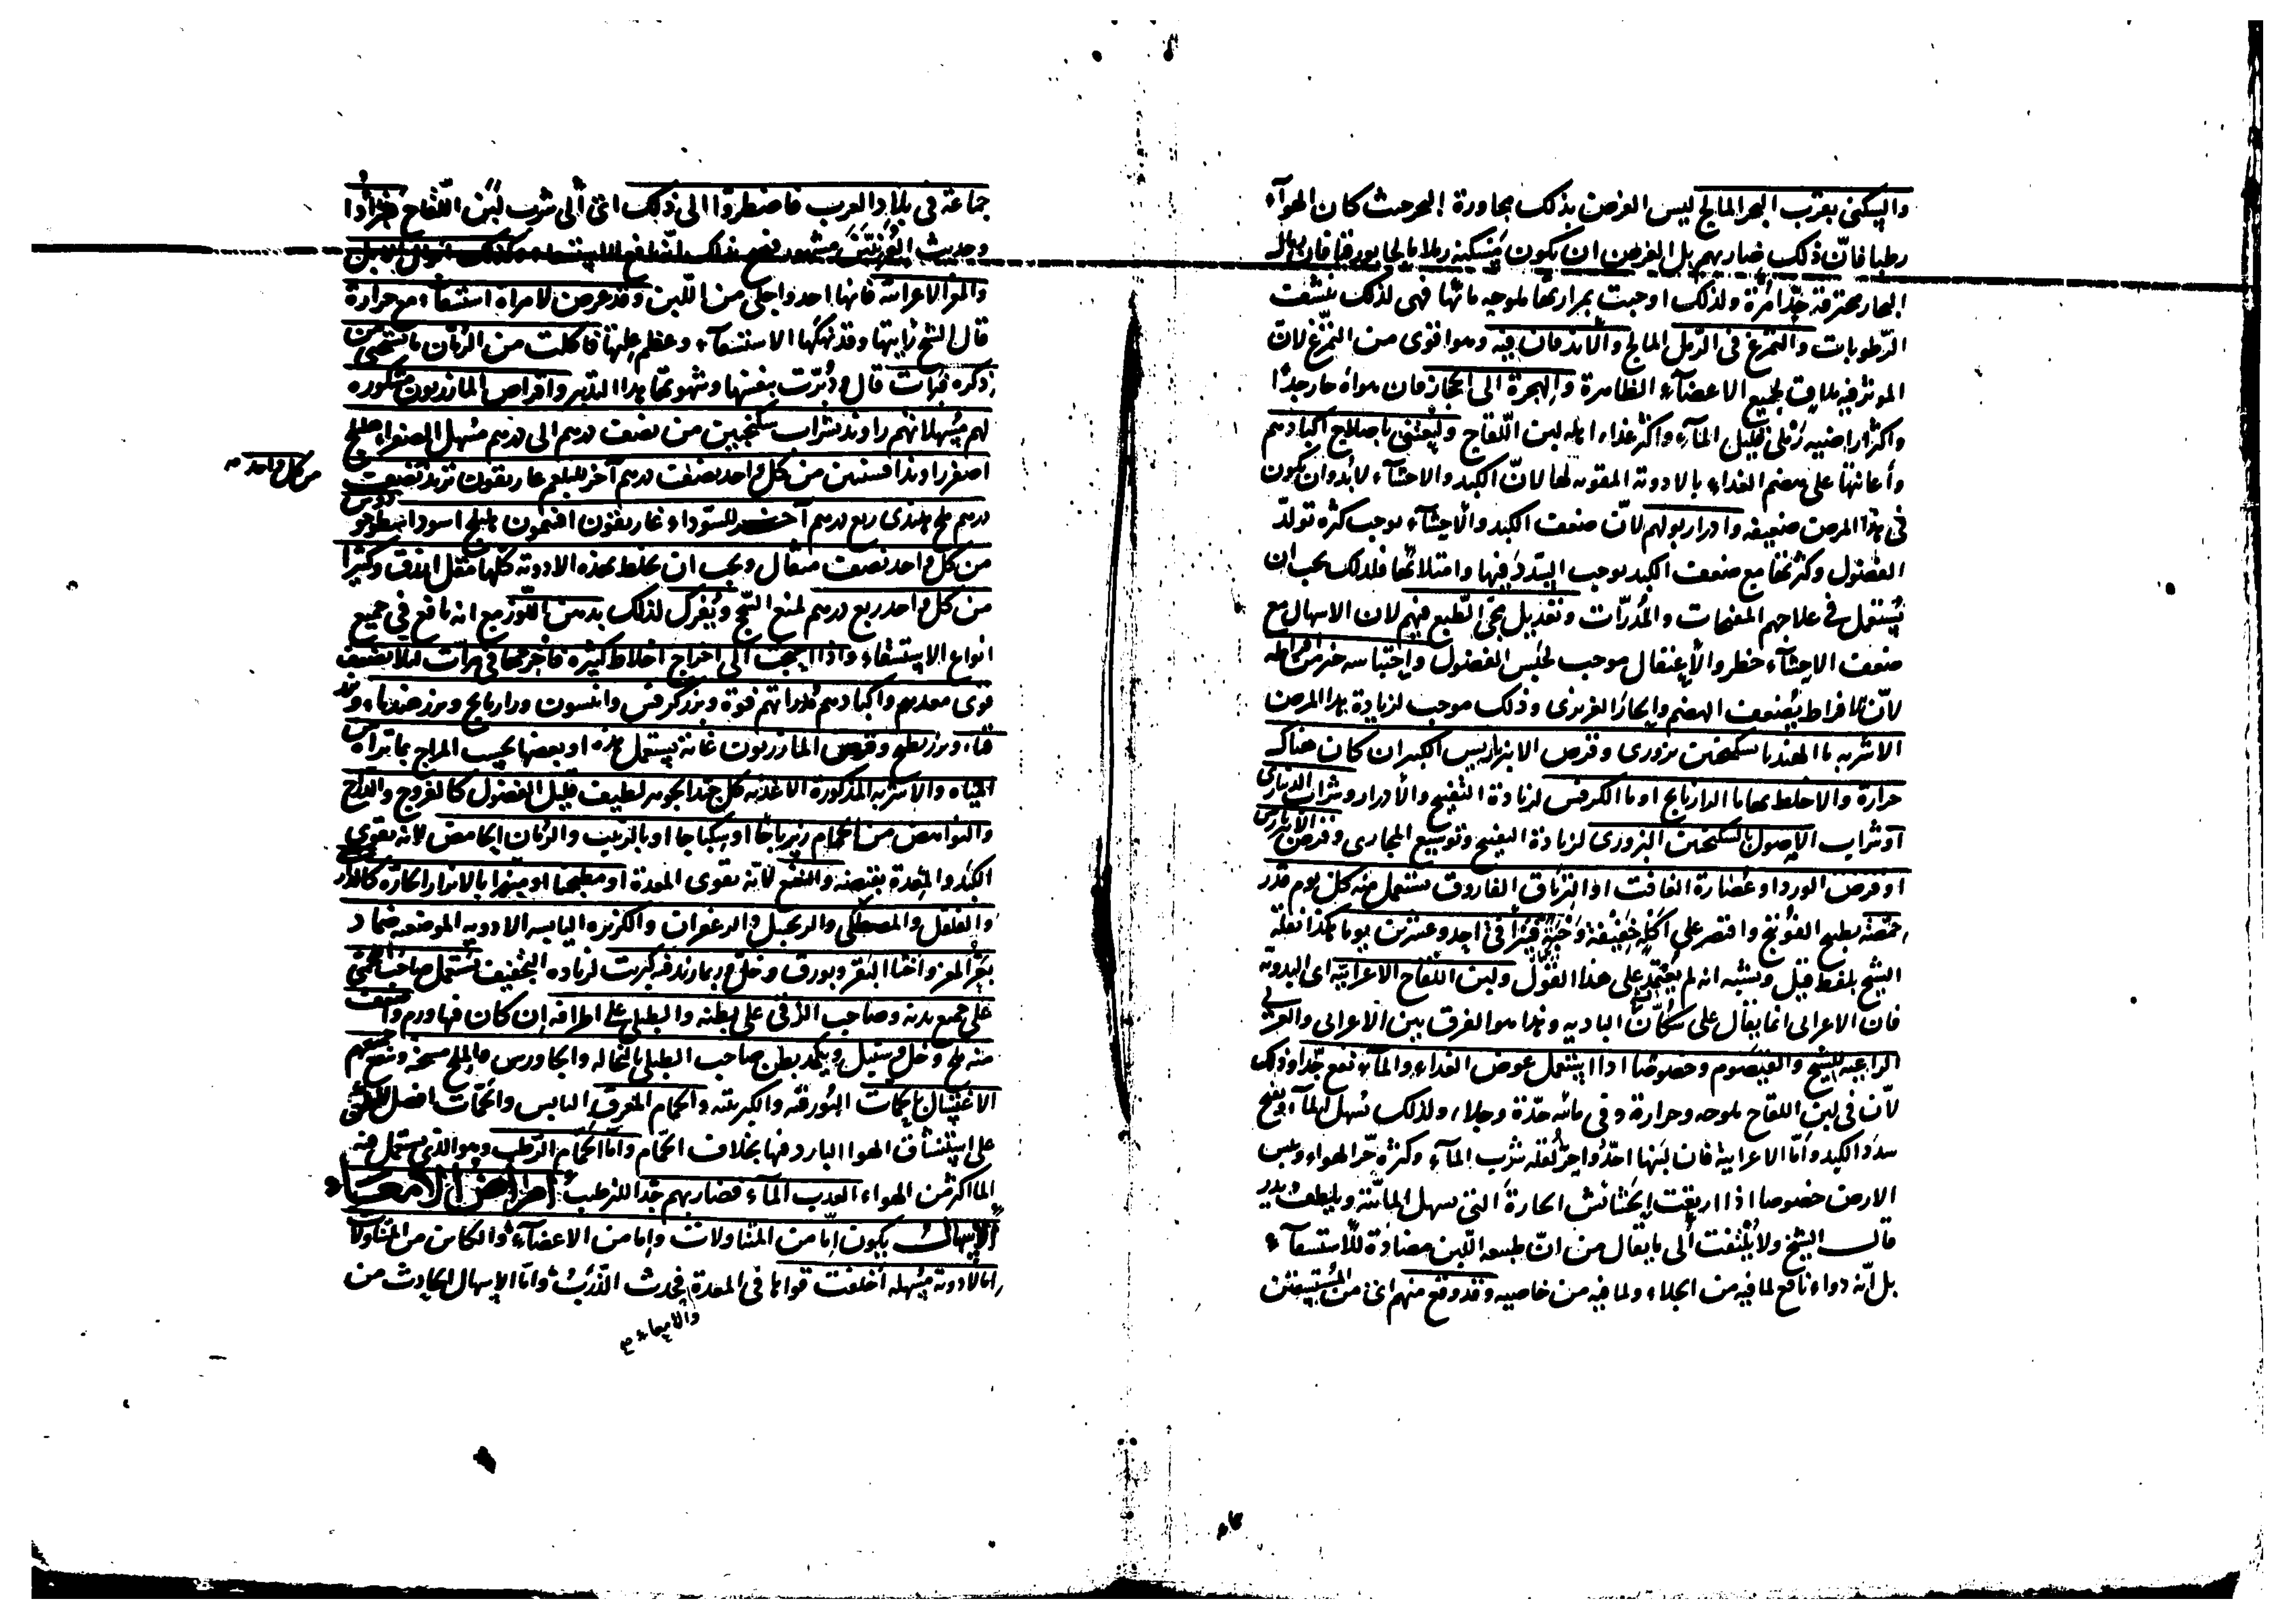 والسكنى بقرب البحر المالح ليس الغرض بذلك مجاورة البحر حيث كان الهوآء
رطبا فانّ ذلك ضار بهم بل الغرض ان يكون مسكنه رملا مالحا بورقيا فان رمال
البحار محترقة جدّا مرّة ولذلك اوجبت بمرارتها ملوحة مائها فهى لذلك ينشف
الرّطوبات والتمرّغ فى الرمل المالح والاندفان فيه وهو اقوى من التمرّغ لان
المؤثر فيه ملاق لجميع الاعضآء الظاهرة والهجرة الى الحجاز فان هواه حار جدًا
واكثر اراضيه رملى قليل المآء واكثر غذاء اهله لبن اللّقاح وليعتنى باصلاح اكبادهم
واعانتها على هضم الغذاء بالادوية المقوية لها لانّ الكبد والاحشآء لابدّ وان يكون
فى هذا المرض ضعيفه وادرار بولهم لانّ ضعف الكبد والاحشآء يوجب كثرة تولّد
الفضول وكثرتها مع ضعف الكبد يوجب السدد فيها وامتلائها فلذلك يجب ان
يستعمل فى علاجهم المفتحات والمدرّات وتعديل مجئ الطّبع فيهم لان الاسهال مع
ضعف الاحشآء خطر والاعتقال موجب لحبس الفضول واحتباسه خير من افراطه
لانّ الافراط يضعف الهضم والحار الغريزى وذلك موجب لزيادة هذا المرض
الاشربه ماالهندبا بسكنجبين بزورى وقرص الانبرباريس الكبير ان كان هناك
حرارة والا خلط بها ما الرازيانج او ما الكرفس لزيادة التفتيح والادرار وشراب الدينارى
او شراب الاصول بالسكنجبين البزورى لزيادة التفتيح وتوسيع المجارى وقرص الانبرباريس
او قرص الورد او عصارة الغافت او الترياق الفاروق يستعمل منه كل يوم قدر
حمّصة بطبيخ الفوتنج واقتصر على اكلة خفيفة وخبز فبرأ فى احد وعشرين يوما هكذا نقله
الشيخ بلفظ قيل ويشبه انه لم يعتمد على هذا القول ولبن اللّقاح الاعرابيّة اى البدويّة
فان الاعرابى انما يقال على سكّان الباديه وهذا هو الفرق بين الاعرابى والعربى
الراعية للشيح والقيصوم وخصوصا اذا استعمل عوض الغذاء والمآء نفع جدّا وذلك
لانّ فى لبن اللقاح ملوحه وحرارة وفى مائه حدّة وجلاء ولذلك تسهل المآء ويفتح
سدد الكبد وأمّا الاعرابية فان لبنها احدّ واحرّ لقلّة شرب المآء وكثرة حرّ الهواء ويبس
الارض خصوصا اذا ارتعت الحشائش الحارة التى تسهل المائيّة ويلطف ويدر
قال الشيخ ولا يلتفت الى ما يقال من انّ طبيعة اللّبن مضادّة للاستسقآء
بل انّه دواء نافع لما فيه من الجلاء ولما فيه من خاصيه وقد وقع منهم اى من المستسقين
جماعة فى بلاد العرب فاضطروا الى ذلك اى الى شرب لبن اللّقاح فبرأوا
وحديث العرنيين مشهور
والمعز الاعرابية فانها احد واجلى من اللّبن وقد عرض لامراة استسقآء مع حرارة
قال الشيخ رايتها وقد نهكها الاستسقآء وعظم عليها فاكلت من الرمّان ما يستحيى من
ذكره فبرأت قال ودبّرت بنفسها وشهوتها هذا التدبير واقراص المازريون مشكوره
لهم مسهلاتهم راوند بشراب سكنجبين من نصف درهم الى درهم مسهل الصفراء هليلج
اصفر راوند افسنتين من كلّ واحد نصف درهم آخر للبلغم غاريقون تربد نصف
من كل واحد
درهم ملح هندى ربع درهم آخر للسّوداء غاريقون افتيمون هليلج اسود اسطوخودوس
من كلّ واحد نصف مثقال ويجب ان يخلط بهذه الادوية كلها مقل ازرق وكثيرا
من كل واحد ربع درهم لمنع السّحج ويفرك لذلك بدهن اللّوز مع انه نافع فى جميع
انواع الاستسقاء واذا احتجت الى اخراج اخلاط كثيرة فاخرجها فى مرّات لئلا يضعف
قوى معدهم واكبادهم مدرّاتهم فوّة وبزر كرفس وانيسون ورازيانج وبزر هندباء وبزر
قثاء وبزر بطيخ وقرص المازريون غاية يستعمل هذه او بعضها بحسب المزاج بما تراه من
المياه والاشربه المذكورة الاغذيه كل جيد الجوهر لطيف قليل الفضول كالفروج والدراج
والنواهض من الحمام زيرباجا او سكباجا او بالزبيب والرمان الحامض لانه يقوى
الكبد والمعدة بقبضه والنعنع لانّه يقوى المعدة او مطبخا او مبزرا بالابزار الحارة كالدارصينى
والفلفل والمصطكى والزنجبيل والزعفران والكزبره اليابسه الادويه الموضعيه ضماد
بعر المعز واخثا البقر وبورق وخلّ وربما زيد فيه كبريت لزياده التجفيف يستعمل صاحب اللحمى
على جميع بدنه وصاحب الزقى على بطنه والطبلى على اطرافه ان كان فيها ورم واضعف
منه ملح وخل وسنبل ويكمد بطن صاحب الطبلى بالنخاله والجاورس والملح مسخنة وينفع جميعهم
الاغتسال بالحمّات البورقيّه والكبريتيّه والحمام المعرق اليابس والحمّات افضل
على استنشاق الهوا البارد فيها بخلاف الحمّام وامّا الحمّام الرّطب وهو الذى يستعمل فيه
الما اكثر من الهواء العذب المآء فضار بهم جدّا للترطيب امراض الامعاء
الاسهال يكون امّا من المتناولات وامّا من الاعضآء والكائن من المتناولات
امّا لادوية مسهله اخلفت قواها فى المعدة فيحدث الذّرب وامّا الاسهال الحادث من
والامعاء